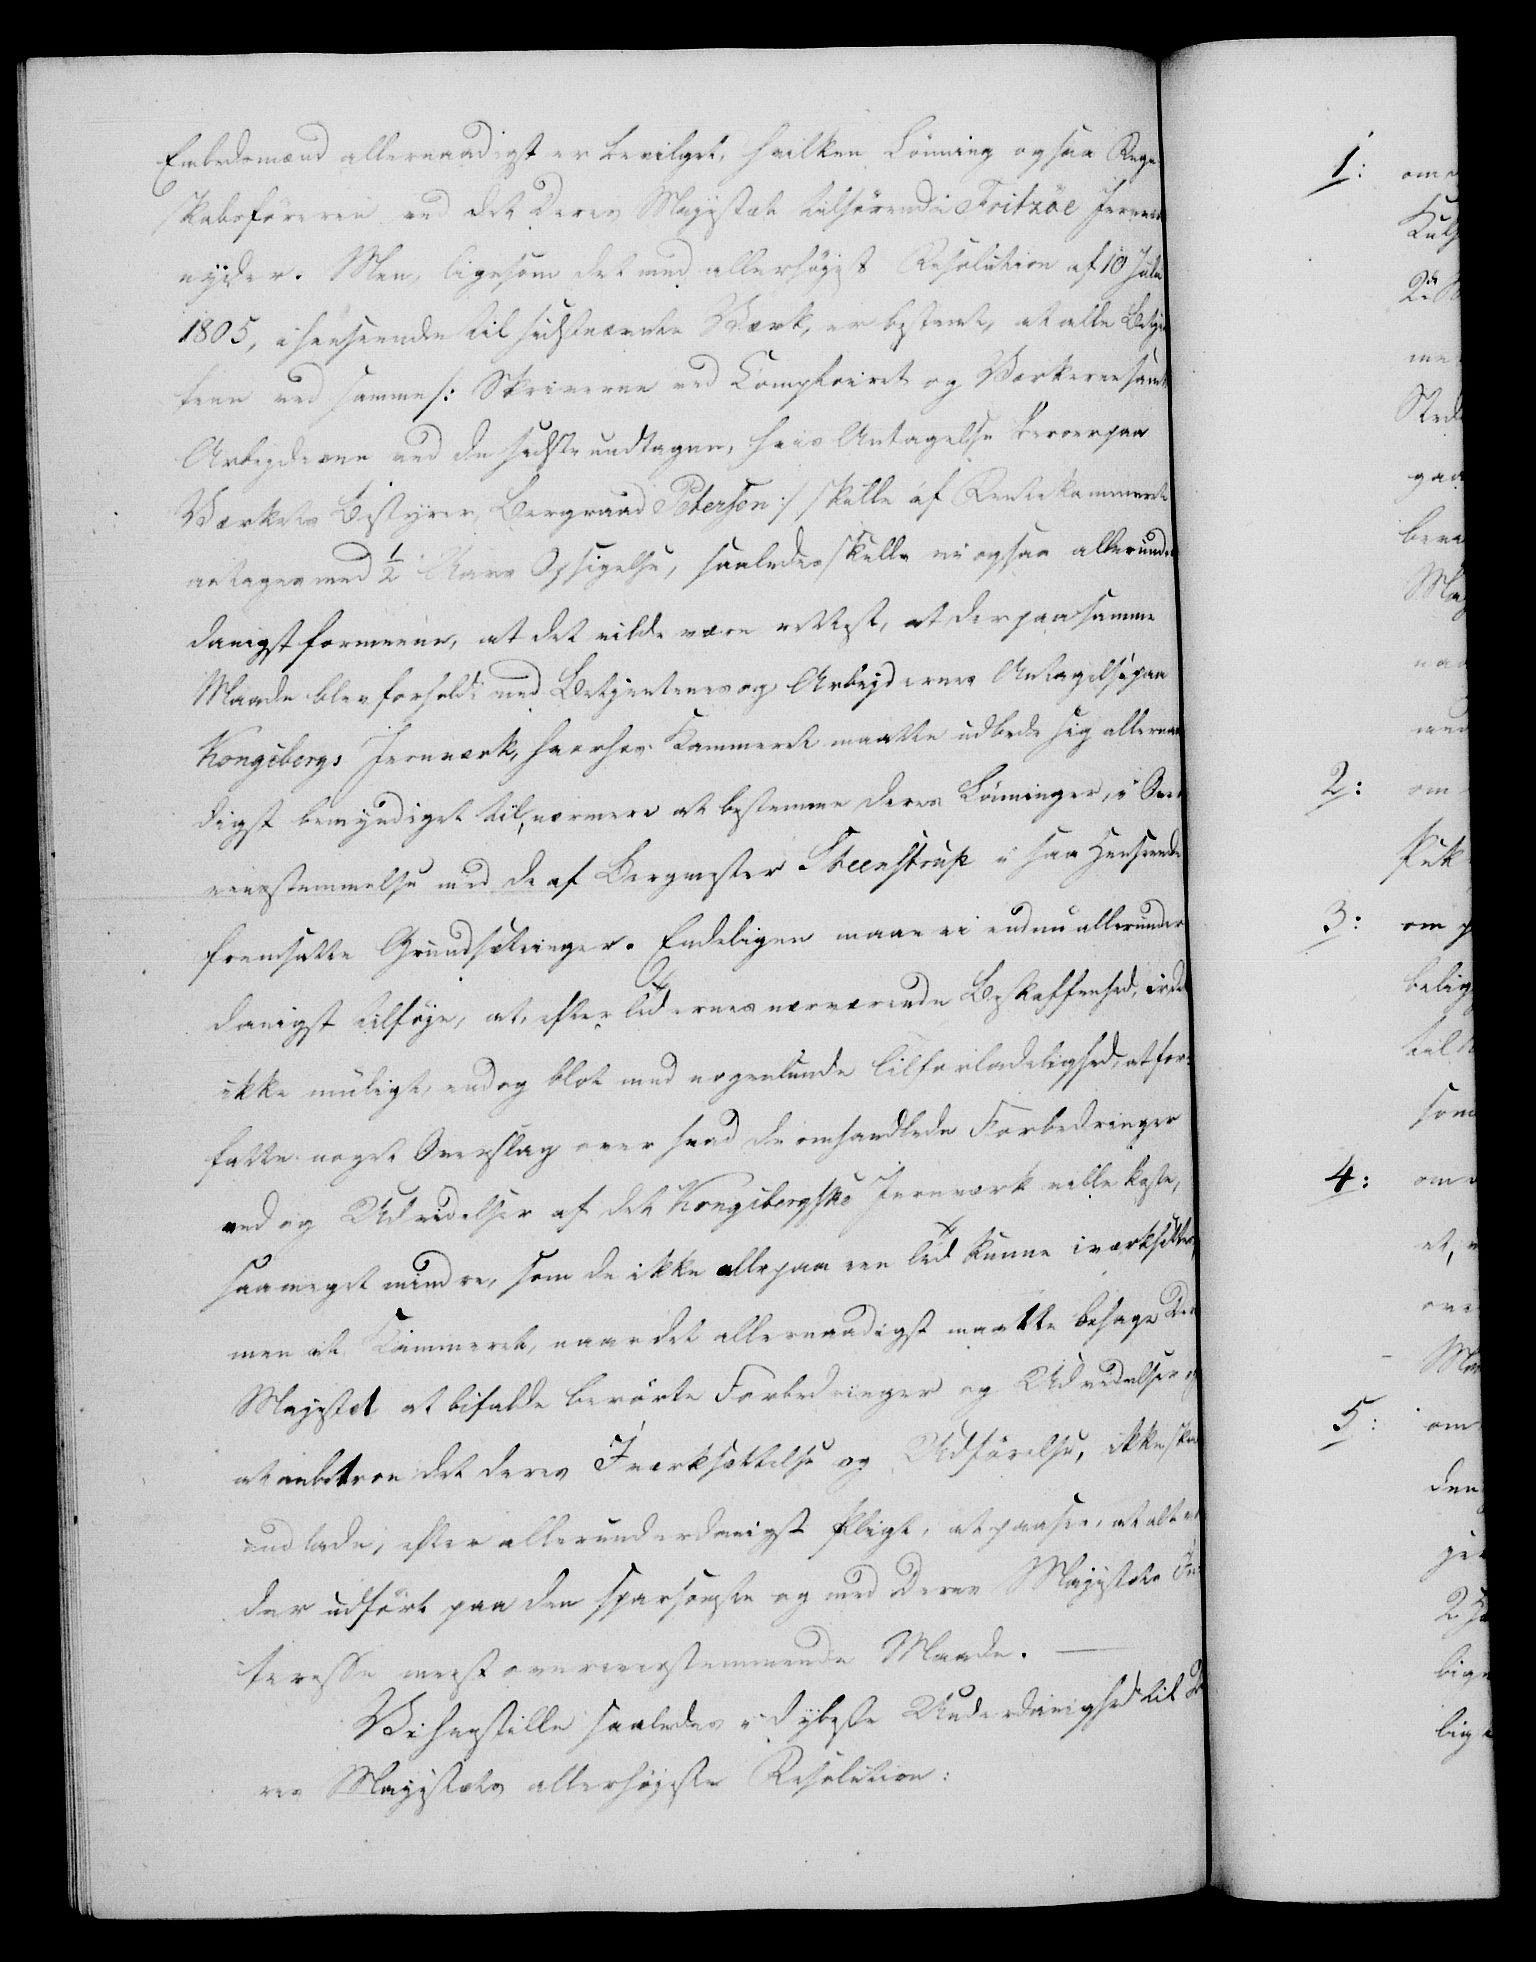 Embedsmænd allernaadigst er bevilget, hvilken Lönning ogsaa Regn-
skabsföreren ved det Deres Majestæt tilhörende Fritzöe Jernværk
nyder. Men, ligesom det med allerhöjest Resolution af 10 Julii
1805, i henseende til sidstnævnte Værk, er bestemt, at alle Betjen
tene ved samme /: Skriverne ved Comptoiret og Værkerne samt
Arbejderne ved de sidste undtagen, hvis Antagelse beroer paa
Værkets Bestyrer, Bergraad Petersen :/ skulle af Rentekammeret
antages med ½ Aars Opsigelse, saaledes skulle vi ogsaa allerunder
danigst formeene, at det vilde være rettest, at der paa samme
Maade blev forholdt med Betjentenes og Arbejdernes Antagelse paa
Kongsbergs Jernværk, hvorhos Kammeret maatte udbede sig allernaa
digst bemyndiget til, nærmere at bestemme deres Lönninger, i Over
eensstemmelse med de af Bergmester Steenstrup i saa Henseende
fremsatte Grundsætninger. Endeligen maae vi endnu allerunder
danigst tilföje, at, efter Tidernes nærværende Beskaffenhed, er det
ikke muligt, endog blot med nogenlunde Tilforladelighed, at for-
fatte noget Overslag over hvad de omhandlede Forbedringer
ved og Udvidelser af det Kongsbergske Jernværk ville koste,
saameget mindre, som de ikke alle paa een Tid kunne iværksættes,
men at Kammeret, naar det allernaadigst maatte behage Deres
Majestæt at bifalde berörte Forbedringer og Udvidelser og
at anbetroe det deres Iværksættelse og Udförelse, ikke skal
undlade, efter allerunderdanigst Pligt, at paasee, at alt vor
der udfört paa den sparsomste og med Deres Majestæts In-
teresse meest overeensstemmende Maade. —
Vi henstille saaledes i dybeste Underdanighed til De
res Majestæts allerhöjeste Resolution:
1:
2:
om
3:
om
4:
om
5:
om